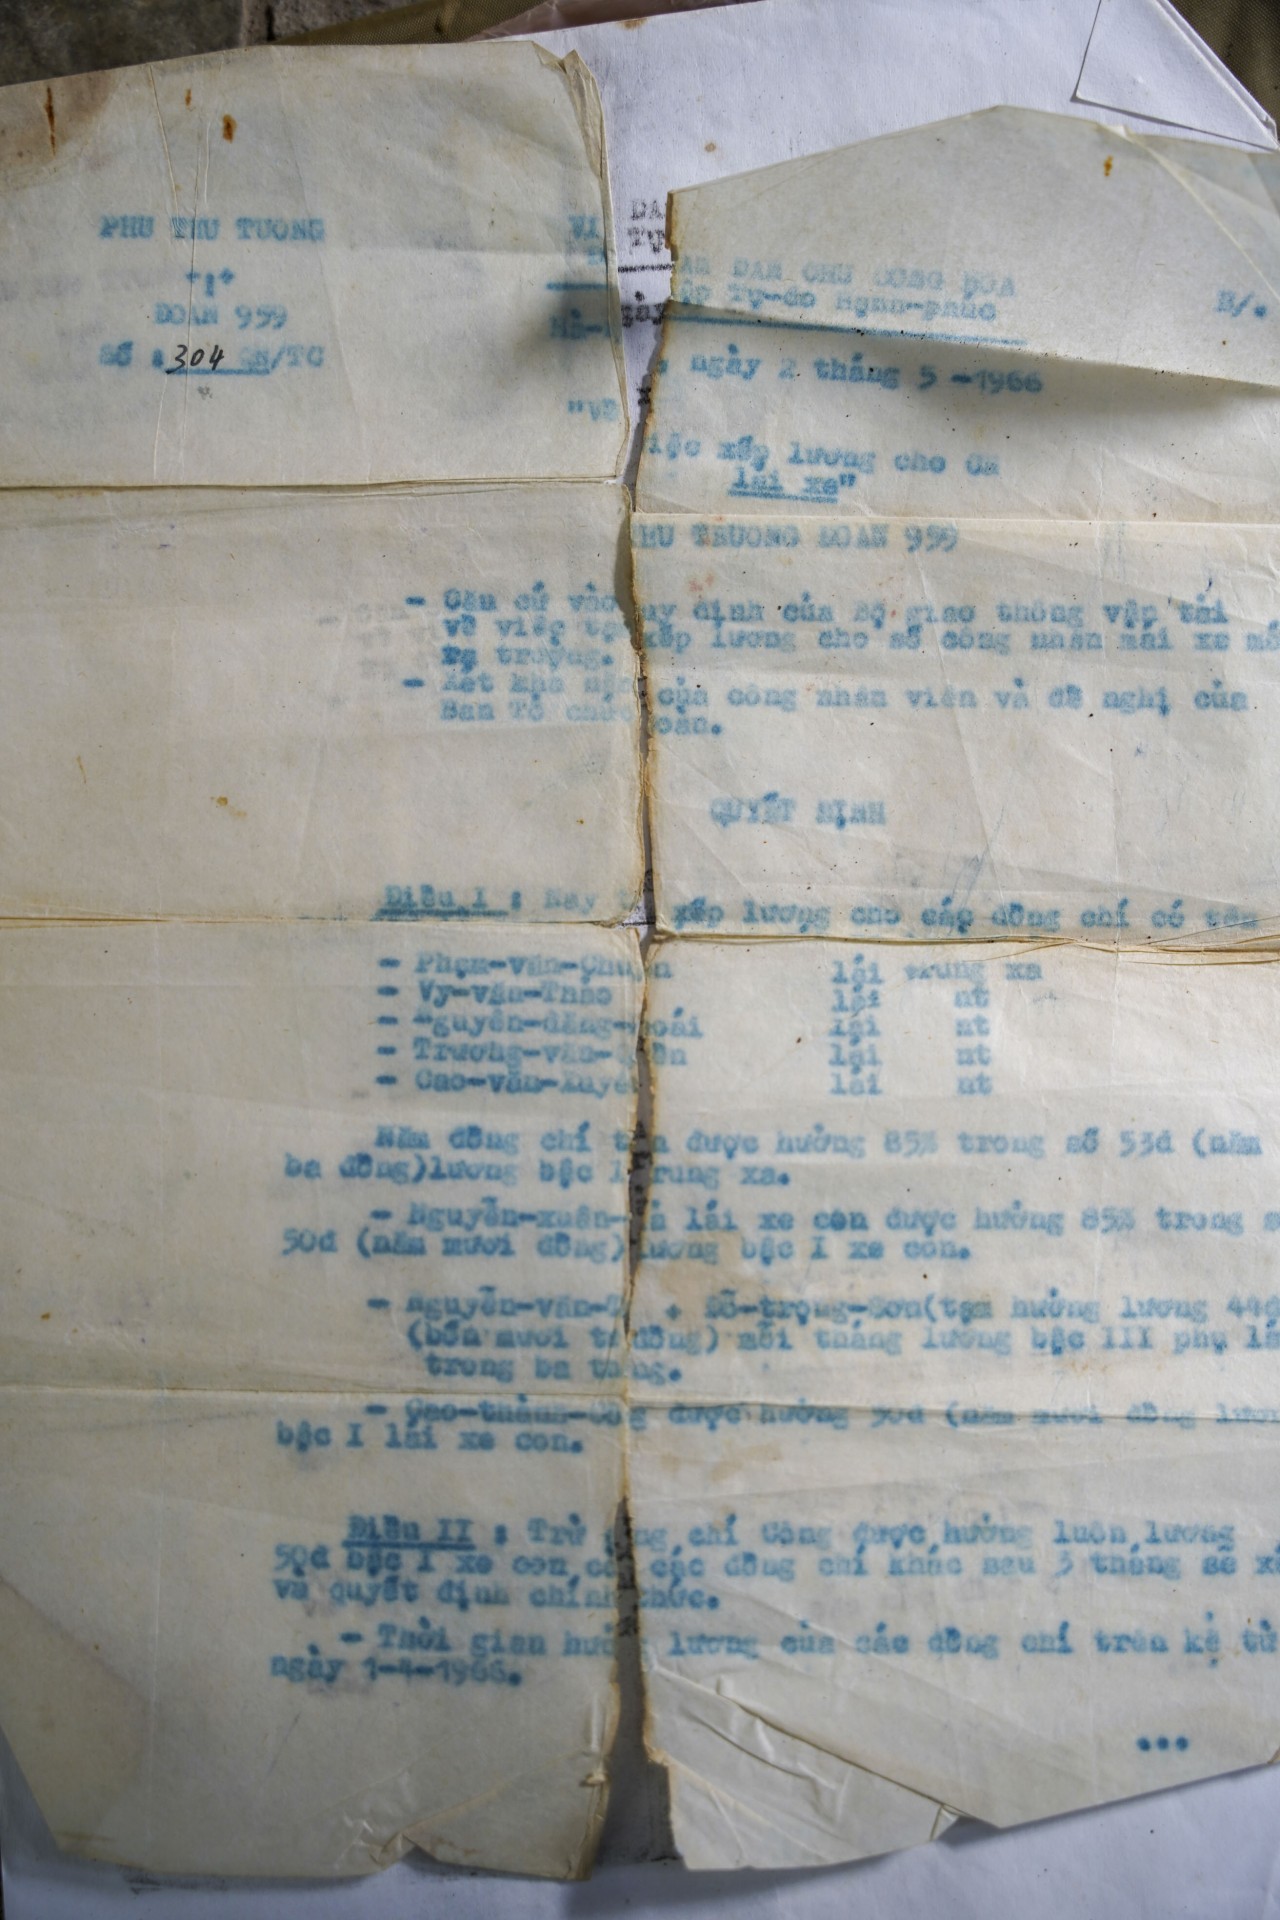 PHU THU TUONG
ĐOAN 959
Số : 304 QĐ/TC
VI
DA
AM DAN CHU CONG HOA
TỰ
ập Tự-do Hạnh-phúc
B/.
Hà-
gày
: ngày 2 tháng 5 -1966
"Về
iệc xếp lương cho CN
lái xe"
HU TRUONG ĐOAN 959
- Căn cứ vào uy định của Bộ giao thông vận tải
về việc tạ xếp lương cho số công nhân lái xe mớ
ra trường.
- Xét khả năn của công nhân viên và đề nghị của
Ban Tổ chức oàn.
QUYẾT ĐỊNH
Điều I : Nay t xếp lương cho các đồng chí có tên
- Phạm-văn-Chuyn lái trung xa
- Vy-văn-Thao lái nt
- Nguyễn-đăng- oái lái nt
- Trương-văn- ền lái nt
- Cao-văn-Xuyê lái nt
Năm đồng chí t n được hưởng 85% trong số 53đ (năm
ba đồng)lương bậc I trung xa.
- Nguyễn-xuân- à lái xe con được hưởng 85% trong s
50đ (năm mươi đồng) lương bậc I xe con.
- Nguyễn-văn-S + Đỗ-trọng-Sơn(tạm hưởng lương 44đ
(bốn mươi tư đồng) mỗi tháng lương bậc III phụ lá
trong ba tháng.
- Cao-thành-Công được hưởng 50đ (năm mươi đồng lươn
bậc I lái xe con.
Điều II : Trừ đồng chí Công được hưởng luôn lương
50đ bậc I xe con còn các đồng chí khác sau 3 tháng sẽ xé
và quyết định chính thức.
- Thời gian hưởng lương của các đồng chí trên kể từ
ngày 1-4-1966.
...